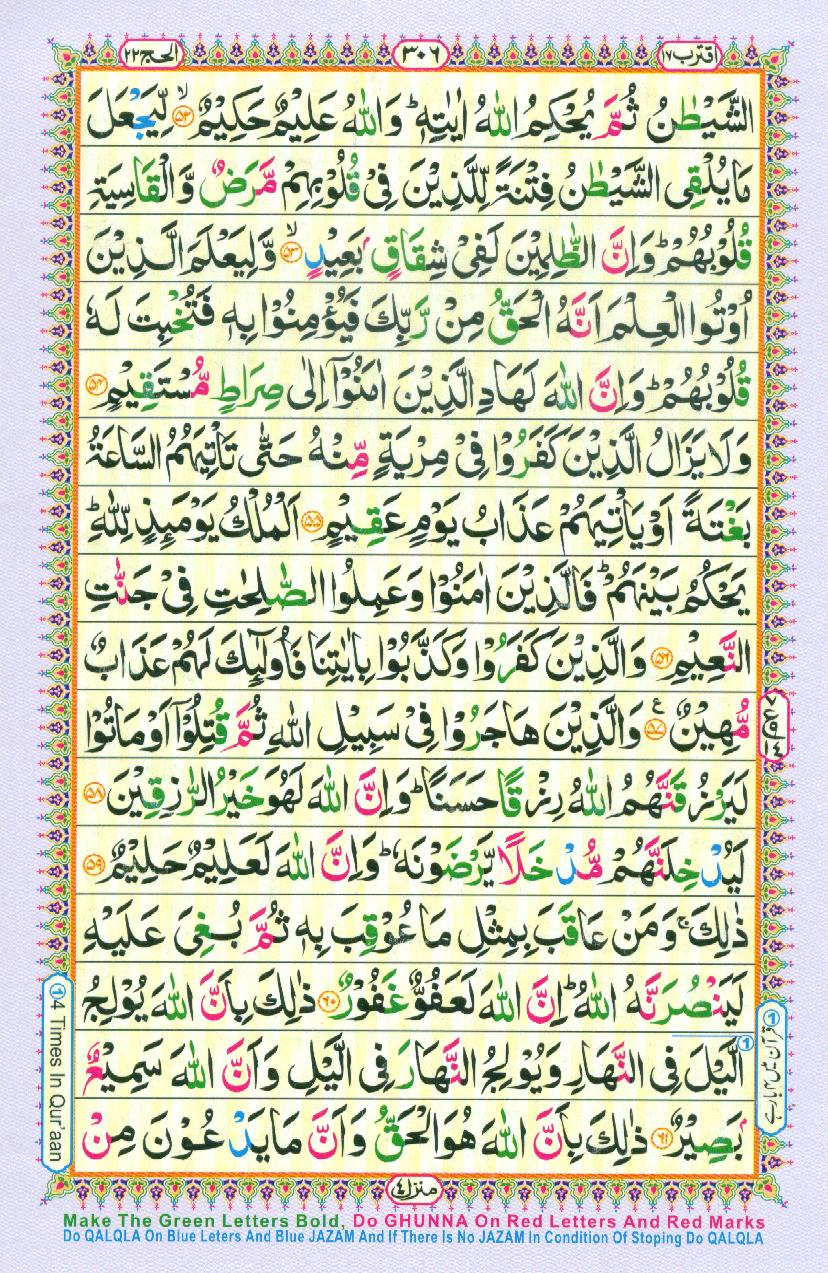 اقترب ١٧
٣٠٦
الحج ٢٢
الشَّيْطٰنُ ثُمَّ يُحْكِمُ اللّٰهُ اٰيٰتِهٖ ؕ وَاللّٰهُ عَلِيْمٌ حَكِيْمٌ ۙ﴿۵۲﴾ لِّيَجْعَلَ
مَا يُلْقِى الشَّيْطٰنُ فِتْنَةً لِّلَّذِيْنَ فِىْ قُلُوْبِهِمْ مَّرَضٌ وَّالْقَاسِيَةِ
قُلُوْبُهُمْ ؕ وَاِنَّ الظّٰلِمِيْنَ لَفِىْ شِقَاقٍۭ بَعِيْدٍ ۙ﴿۵۳﴾ وَّلِيَعْلَمَ الَّذِيْنَ
اُوْتُوا الْعِلْمَ اَنَّهُ الْحَقُّ مِنْ رَّبِّكَ فَيُؤْمِنُوْا بِهٖ فَتُخْبِتَ لَهٗ
قُلُوْبُهُمْ ؕ وَاِنَّ اللّٰهَ لَهَادِ الَّذِيْنَ اٰمَنُوْۤا اِلٰى صِرَاطٍ مُّسْتَقِيْمٍ ﴿۵۴﴾
وَلَا يَزَالُ الَّذِيْنَ كَفَرُوْا فِىْ مِرْيَةٍ مِّنْهُ حَتّٰى تَاْتِيَهُمُ السَّاعَةُ
بَغْتَةً اَوْ يَاْتِيَهُمْ عَذَابُ يَوْمٍ عَقِيْمٍ ﴿۵۵﴾ اَلْمُلْكُ يَوْمَئِذٍ لِّلّٰهِ ؕ
يَحْكُمُ بَيْنَهُمْ ؕ فَالَّذِيْنَ اٰمَنُوْا وَعَمِلُوا الصّٰلِحٰتِ فِىْ جَنّٰتِ
النَّعِيْمِ ﴿۵۶﴾ وَالَّذِيْنَ كَفَرُوْا وَكَذَّبُوْا بِاٰيٰتِنَا فَاُولٰٓئِكَ لَهُمْ عَذَابٌ
مُّهِيْنٌ ﴿۵۷﴾ ع وَالَّذِيْنَ هَاجَرُوْا فِىْ سَبِيْلِ اللّٰهِ ثُمَّ قُتِلُوْۤا اَوْ مَاتُوْا
لَيَرْزُقَنَّهُمُ اللّٰهُ رِزْقًا حَسَنًا ؕ وَاِنَّ اللّٰهَ لَهُوَ خَيْرُ الرّٰزِقِيْنَ ﴿۵۸﴾
لَيُدْخِلَنَّهُمْ مُّدْخَلًا يَّرْضَوْنَهٗ ؕ وَاِنَّ اللّٰهَ لَعَلِيْمٌ حَلِيْمٌ ﴿۵۹﴾
ذٰلِكَ ۚ وَمَنْ عَاقَبَ بِمِثْلِ مَا عُوْقِبَ بِهٖ ثُمَّ بُغِىَ عَلَيْهِ
لَيَنْصُرَنَّهُ اللّٰهُ ؕ اِنَّ اللّٰهَ لَعَفُوٌّ غَفُوْرٌ ﴿۶۰﴾ ذٰلِكَ بِاَنَّ اللّٰهَ يُوْلِجُ
الَّيْلَ فِى النَّهَارِ وَيُوْلِجُ النَّهَارَ فِى الَّيْلِ وَاَنَّ اللّٰهَ سَمِيْعٌۢ
بَصِيْرٌ ﴿۶۱﴾ ذٰلِكَ بِاَنَّ اللّٰهَ هُوَ الْحَقُّ وَاَنَّ مَا يَدْعُوْنَ مِنْ
① قرآن میں ۴ بار ہے
① 4 Times In Qur'aan
منزل ٤
Make The Green Letters Bold, Do GHUNNA On Red Letters And Red Marks
Do QALQLA On Blue Leters And Blue JAZAM And If There Is No JAZAM In Condition Of Stoping Do QALQLA